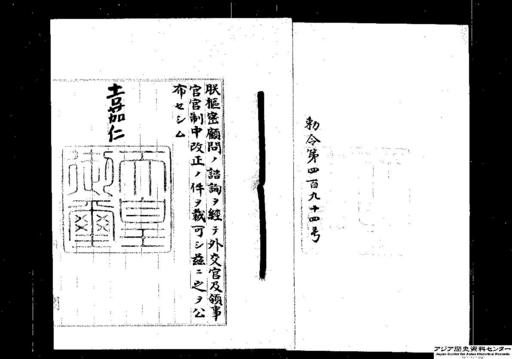 勅令第四百九十四号
朕枢密顧問ノ諮詢ヲ経テ外交官及領事
官官制中改正ノ件ヲ裁可シ茲ニ之ヲ公
布セシム
嘉仁
天皇
御璽
アジア歴史資料センター
Japan Center for Asian Historical Records